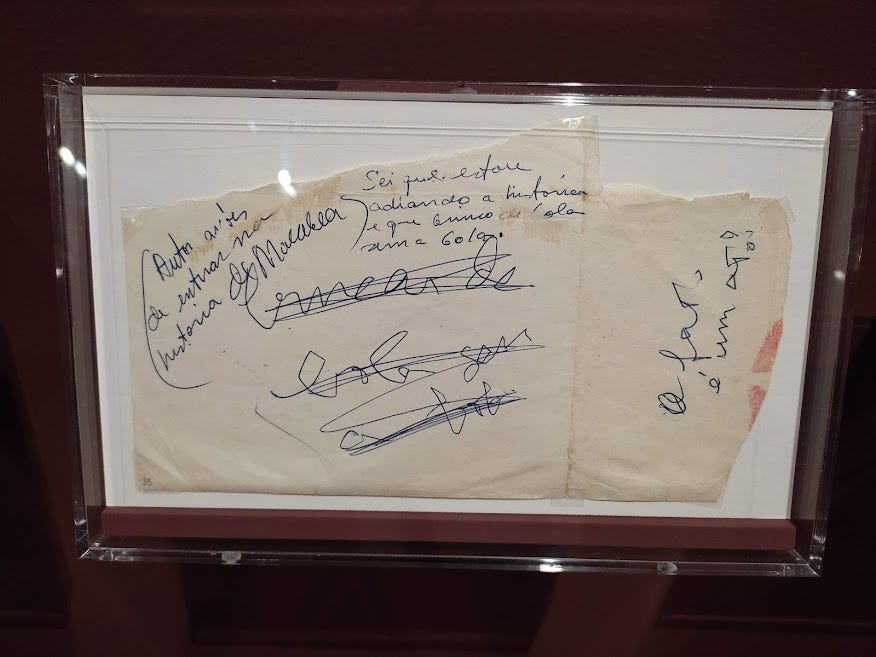 (Autor antes
de entrar na
história de Macabea)
Sei que estou
adiando a história
e que brinco de bola
sem a bola.
o fato
é um ato
39